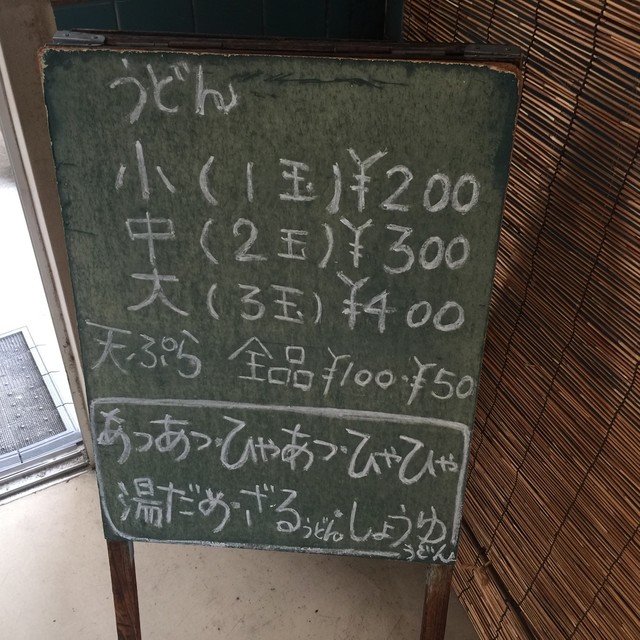 うどん
小(1玉)¥200
中(2玉)¥300
大(3玉)¥400
天ぷら 全品¥100・¥50
あつあつ・ひやあつ・ひやひや
湯だめ・ざるうどん・しょうゆうどん